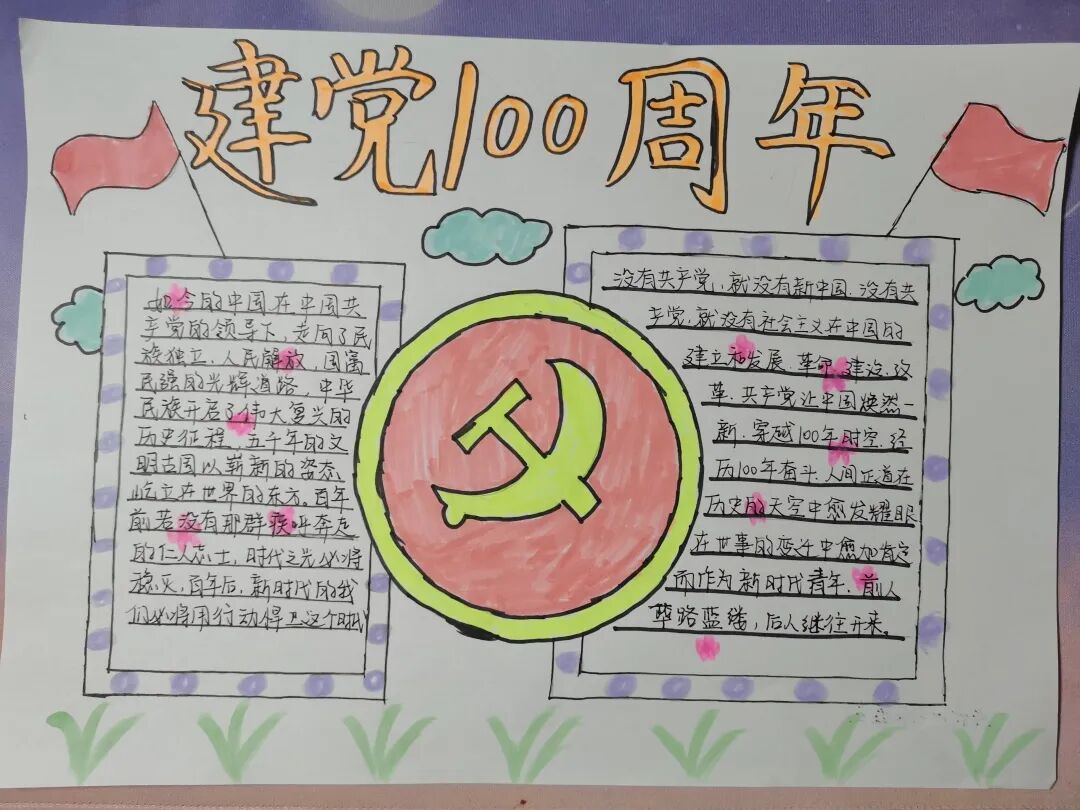 建党100周年
如今的中国在中国共
产党的领导下,走向了民
族独立、人民解放,国富
民强的光辉道路,中华
民族开启了伟大复兴的
历史征程,五千年的文
明古国以崭新的姿态
屹立在世界的东方。百年
前若没有那群疾呼奔走
的仁人志士,时代之光必将
熄灭,百年后,新时代的我
们必将用行动捍卫这个时代
没有共产党,就没有新中国.没有共
产党,就没有社会主义在中国的
建立和发展.革命.建设.改
革.共产党让中国焕然一
新.穿越100年时空.经
历100年奋斗.人间正道在
历史的天空中愈发耀眼
在世事的变迁中愈加肯定
而作为新时代青年.前人
筚路蓝缕,后人继往开来。